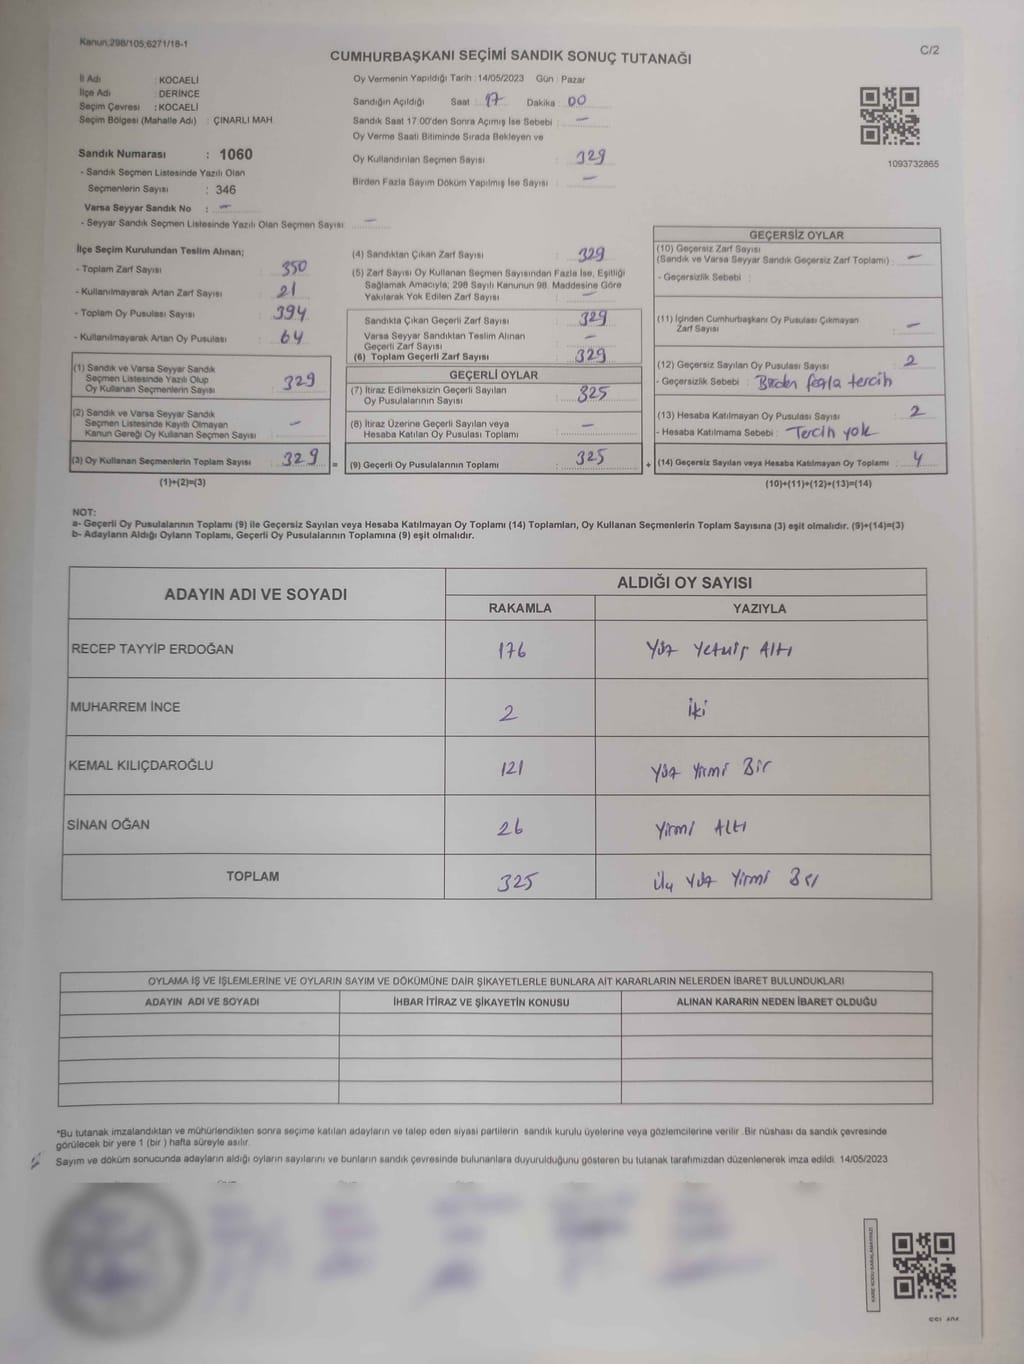 Kanun;298/105;6271/18-1
C/2
CUMHURBAŞKANI SEÇİMİ SANDIK SONUÇ TUTANAĞI
İl Adı : KOCAELİ
İlçe Adı : DERİNCE
Seçim Çevresi : KOCAELİ
Seçim Bölgesi (Mahalle Adı) : ÇINARLI MAH.
Sandık Numarası : 1060
- Sandık Seçmen Listesinde Yazılı Olan
Seçmenlerin Sayısı : 346
Varsa Seyyar Sandık No : –
- Seyyar Sandık Seçmen Listesinde Yazılı Olan Seçmen Sayısı: –
Oy Vermenin Yapıldığı Tarih : 14/05/2023 Gün : Pazar
Sandığın Açıldığı Saat : 17 Dakika : 00
Sandık Saat 17:00'den Sonra Açımış İse Sebebi : –
Oy Verme Saati Bitiminde Sırada Bekleyen ve
Oy Kullandırılan Seçmen Sayısı : 329
Birden Fazla Sayım Döküm Yapılmış İse Sayısı : –
1093732865
İlçe Seçim Kurulundan Teslim Alınan;
- Toplam Zarf Sayısı : 350
- Kullanılmayarak Artan Zarf Sayısı : 21
- Toplam Oy Pusulası Sayısı : 394
- Kullanılmayarak Artan Oy Pusulası : 64
(1) Sandık ve Varsa Seyyar Sandık
Seçmen Listesinde Yazılı Olup
Oy Kullanan Seçmenlerin Sayısı : 329
(2) Sandık ve Varsa Seyyar Sandık
Seçmen Listesinde Kayıtlı Olmayan
Kanun Gereği Oy Kullanan Seçmen Sayısı : –
(3) Oy Kullanan Seçmenlerin Toplam Sayısı : 329
(1)+(2)=(3)
(4) Sandıktan Çıkan Zarf Sayısı : 329
(5) Zarf Sayısı Oy Kullanan Seçmen Sayısından Fazla İse, Eşitliği
Sağlamak Amacıyla; 298 Sayılı Kanunun 98. Maddesine Göre
Yakılarak Yok Edilen Zarf Sayısı : –
Sandıkta Çıkan Geçerli Zarf Sayısı : 329
Varsa Seyyar Sandıktan Teslim Alınan
Geçerli Zarf Sayısı : –
(6) Toplam Geçerli Zarf Sayısı : 329
GEÇERLİ OYLAR
(7) İtiraz Edilmeksizin Geçerli Sayılan
Oy Pusulalarının Sayısı : 325
(8) İtiraz Üzerine Geçerli Sayılan veya
Hesaba Katılan Oy Pusulası Toplamı : –
= (9) Geçerli Oy Pusulalarının Toplamı : 325
GEÇERSİZ OYLAR
(10) Geçersiz Zarf Sayısı
(Sandık ve Varsa Seyyar Sandık Geçersiz Zarf Toplamı) : –
- Geçersizlik Sebebi :
(11) İçinden Cumhurbaşkanı Oy Pusulası Çıkmayan
Zarf Sayısı : –
(12) Geçersiz Sayılan Oy Pusulası Sayısı : 2
- Geçersizlik Sebebi : Birden fazla tercih
(13) Hesaba Katılmayan Oy Pusulası Sayısı : 2
- Hesaba Katılmama Sebebi : Tercih yok
+ (14) Geçersiz Sayılan veya Hesaba Katılmayan Oy Toplamı : 4
(10)+(11)+(12)+(13)=(14)
NOT:
a- Geçerli Oy Pusulalarının Toplamı (9) ile Geçersiz Sayılan veya Hesaba Katılmayan Oy Toplamı (14) Toplamları, Oy Kullanan Seçmenlerin Toplam Sayısına (3) eşit olmalıdır. (9)+(14)=(3)
b- Adayların Aldığı Oyların Toplamı, Geçerli Oy Pusulalarının Toplamına (9) eşit olmalıdır.
ADAYIN ADI VE SOYADI
ALDIĞI OY SAYISI
RAKAMLA YAZIYLA
RECEP TAYYİP ERDOĞAN 176 Yüz Yetmiş Altı
MUHARREM İNCE 2 İki
KEMAL KILIÇDAROĞLU 121 Yüz Yirmi Bir
SİNAN OĞAN 26 Yirmi Altı
TOPLAM 325 Üç Yüz Yirmi Beş
OYLAMA İŞ VE İŞLEMLERİNE VE OYLARIN SAYIM VE DÖKÜMÜNE DAİR ŞİKAYETLERLE BUNLARA AİT KARARLARIN NELERDEN İBARET BULUNDUKLARI
ADAYIN ADI VE SOYADI İHBAR İTİRAZ VE ŞİKAYETİN KONUSU ALINAN KARARIN NEDEN İBARET OLDUĞU
*Bu tutanak imzalandıktan ve mühürlendikten sonra seçime katılan adayların ve talep eden siyasi partilerin sandık kurulu üyelerine veya gözlemcilerine verilir. Bir nüshası da sandık çevresinde
görülecek bir yere 1 (bir ) hafta süreyle asılır.
Sayım ve döküm sonucunda adayların aldığı oyların sayılarını ve bunların sandık çevresinde bulunanlara duyurulduğunu gösteren bu tutanak tarafımızdan düzenlenerek imza edildi. 14/05/2023